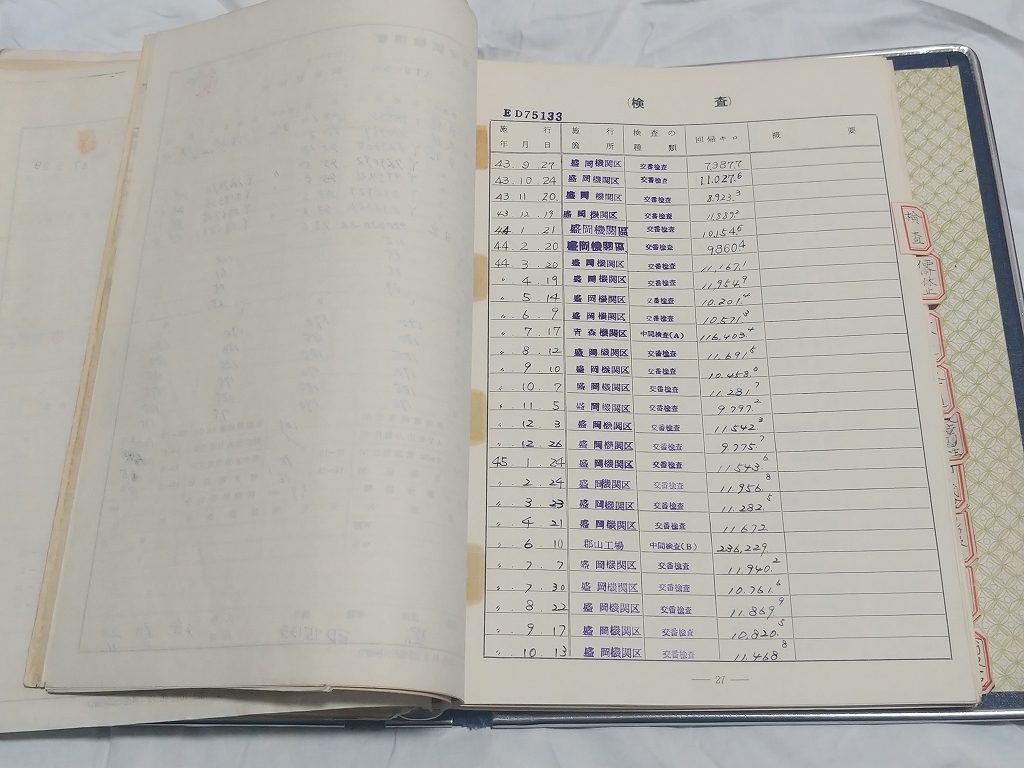 (検 査)
ED75133
施行年月日 施行箇所 検査の種類 回帰キロ 概要
43. 9. 27 盛岡機関区 交番検査 7,987.7
43. 10 24 盛岡機関区 交番検査 11,027.6
43 11 20 盛岡機関区 交番検査 8,923.3
43. 12. 19 盛岡機関区 交番検査
44. 1. 21 盛岡機関區 交番検査 10,154.6
44. 2. 20 盛岡機関區 交番検査 9,860.4
44. 3. 20 盛岡機関区 交番検査 11,167.1
〃 4. 19 盛岡機関区 交番検査 11,954.9
〃 5 14 盛岡機関区 交番検査 10,201.4
〃 6. 9 盛岡機関区 交番検査 10,571.3
〃 7. 17 青森機関区 中間検査(A) 116,403.4
〃 8. 12 盛岡機関区 交番検査 11,691.5
〃 9 10 盛岡機関区 交番検査 10,458.0
〃 10. 7 盛岡機関区 交番検査 11,281.7
〃 11. 5 盛岡機関区 交番検査 9,797.2
〃 12. 3 盛岡機関区 交番検査 11,542.3
〃 12. 26 盛岡機関区 交番検査 9,775.7
45. 1. 24 盛岡機関区 交番検査 11,543.6
〃 2. 24 盛岡機関区 交番検査 11,956.8
〃 3 23 盛岡機関区 交番検査 11,282.5
〃 4 21 盛岡機関区 交番検査 11,672.
〃 6 10 郡山工場 中間検査(B) 236,229.
〃 7. 7 盛岡機関区 交番検査 11,940.2
〃 7. 30 盛岡機関区 交番検査 10,761.6
〃 8. 22 盛岡機関区 交番検査 11,869.9
〃 9. 17 盛岡機関区 交番検査 10,820.5
〃 10. 13 盛岡機関区 交番検査 11,468.8
— 27 —
検査